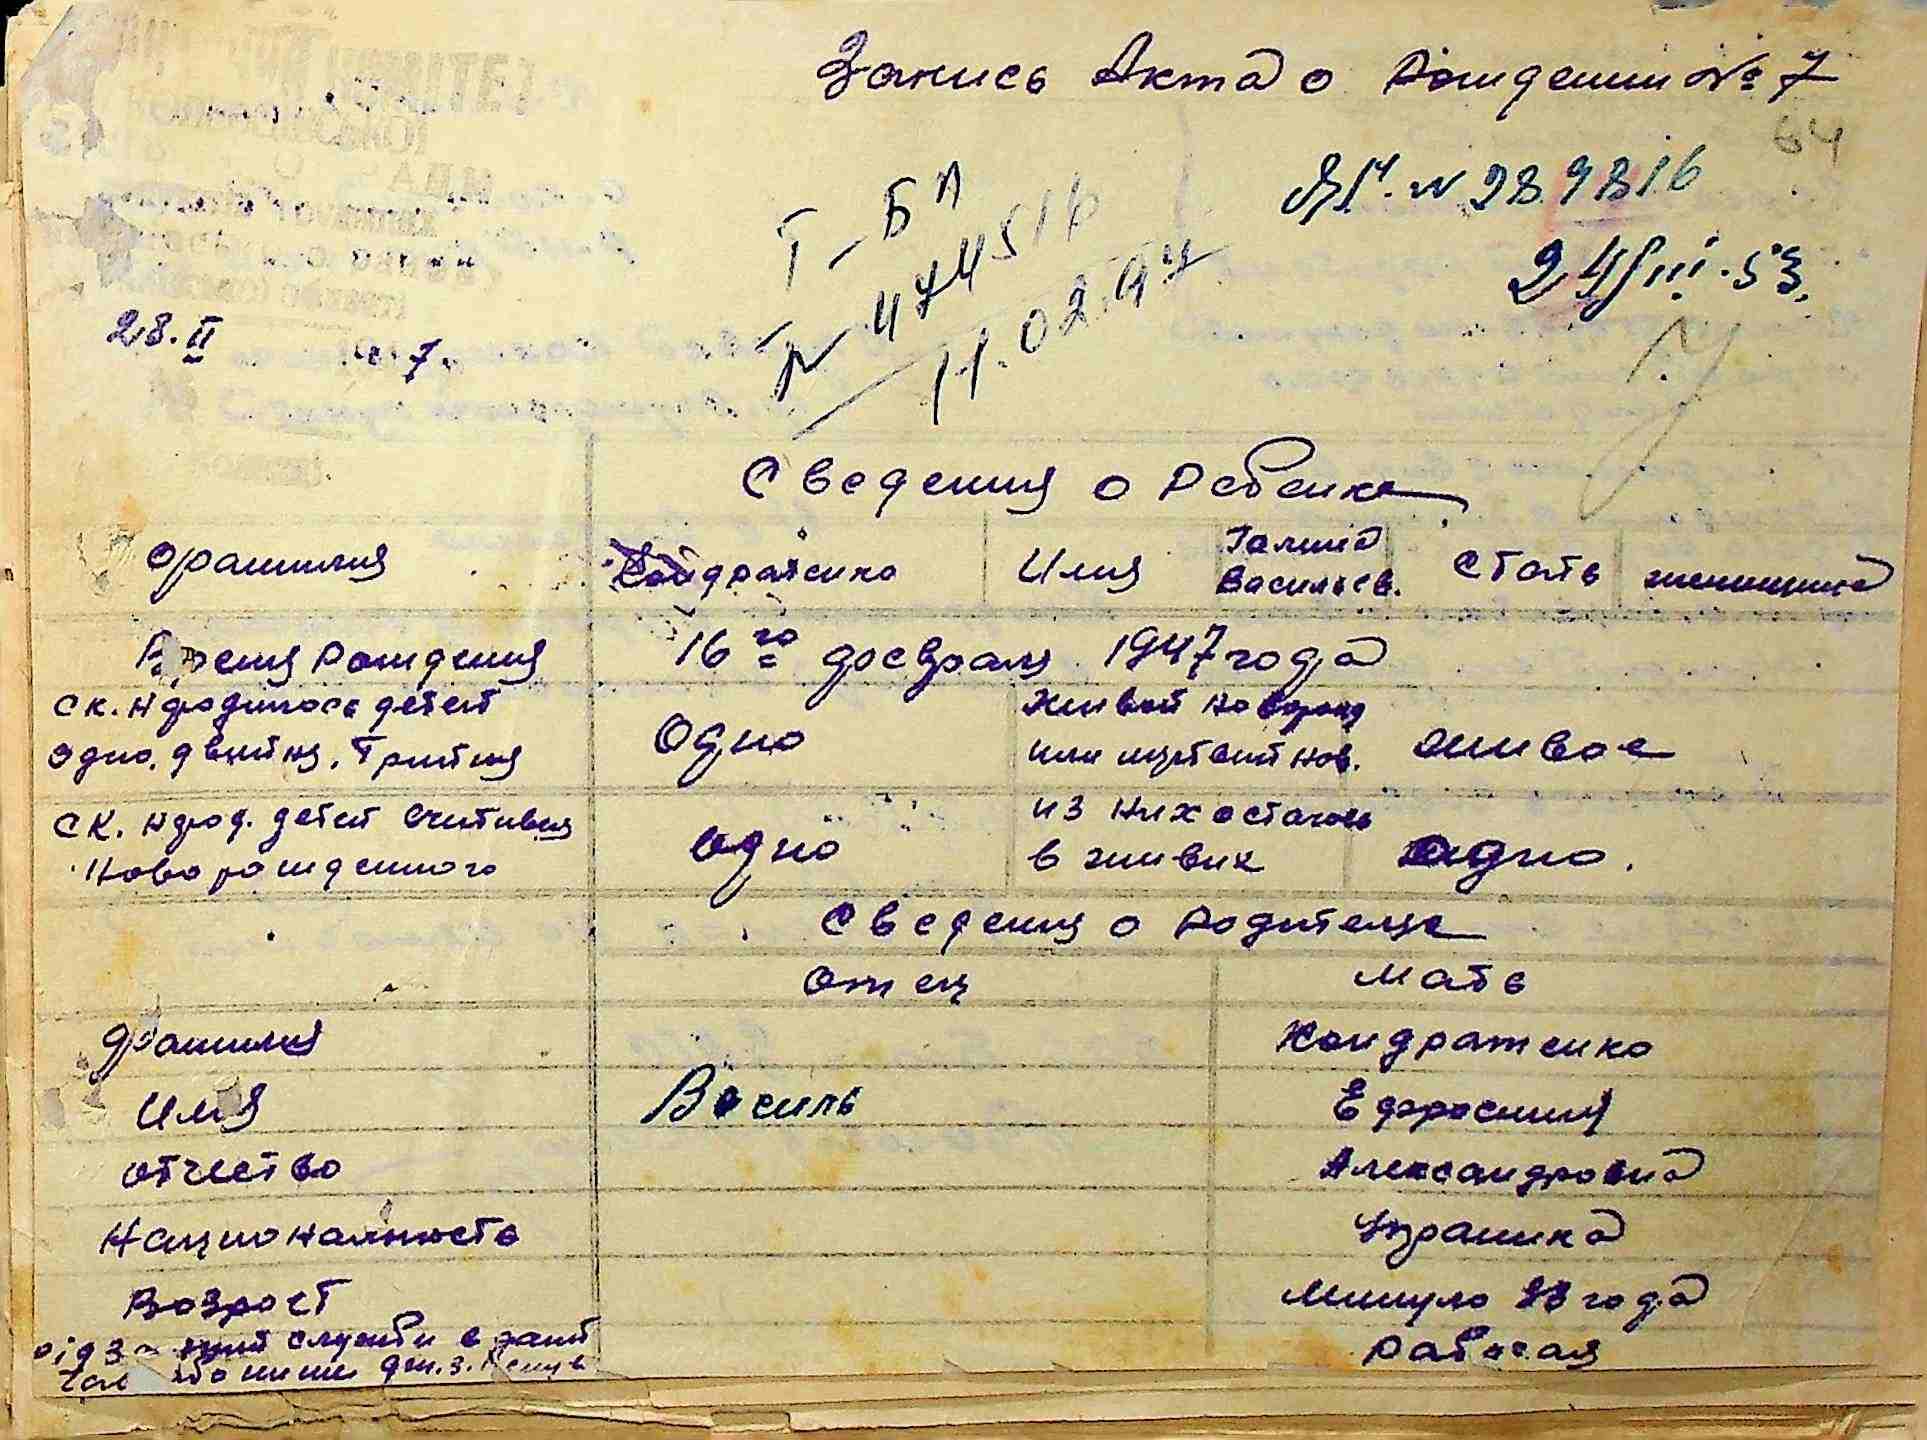 Запись Акта о Рождении № 7
64
№ 289816
24/III-53.
I-БП
№ 474516
11.02.97
28.II 47.
Сведения о Ребенке
Фамилия Кондратенко Имя Галина Васильев. Стать женщина
Время Рождения 16го февраля 1947 года
Ск. народилось детей
одно, двитня, Тритня
Одно
живой новорожд
или мертвий нов.
живое
Ск. народ. детей считивая
Новорожденного
одно
из них осталось
в живих
одно.
Сведения о Родителях
Отец Мать
Фамилия Кондратенко
Имя Василь Ефросиния
Отчество Александровна
Национальность Украинка
Возраст Минуло года
служби в Рабочая